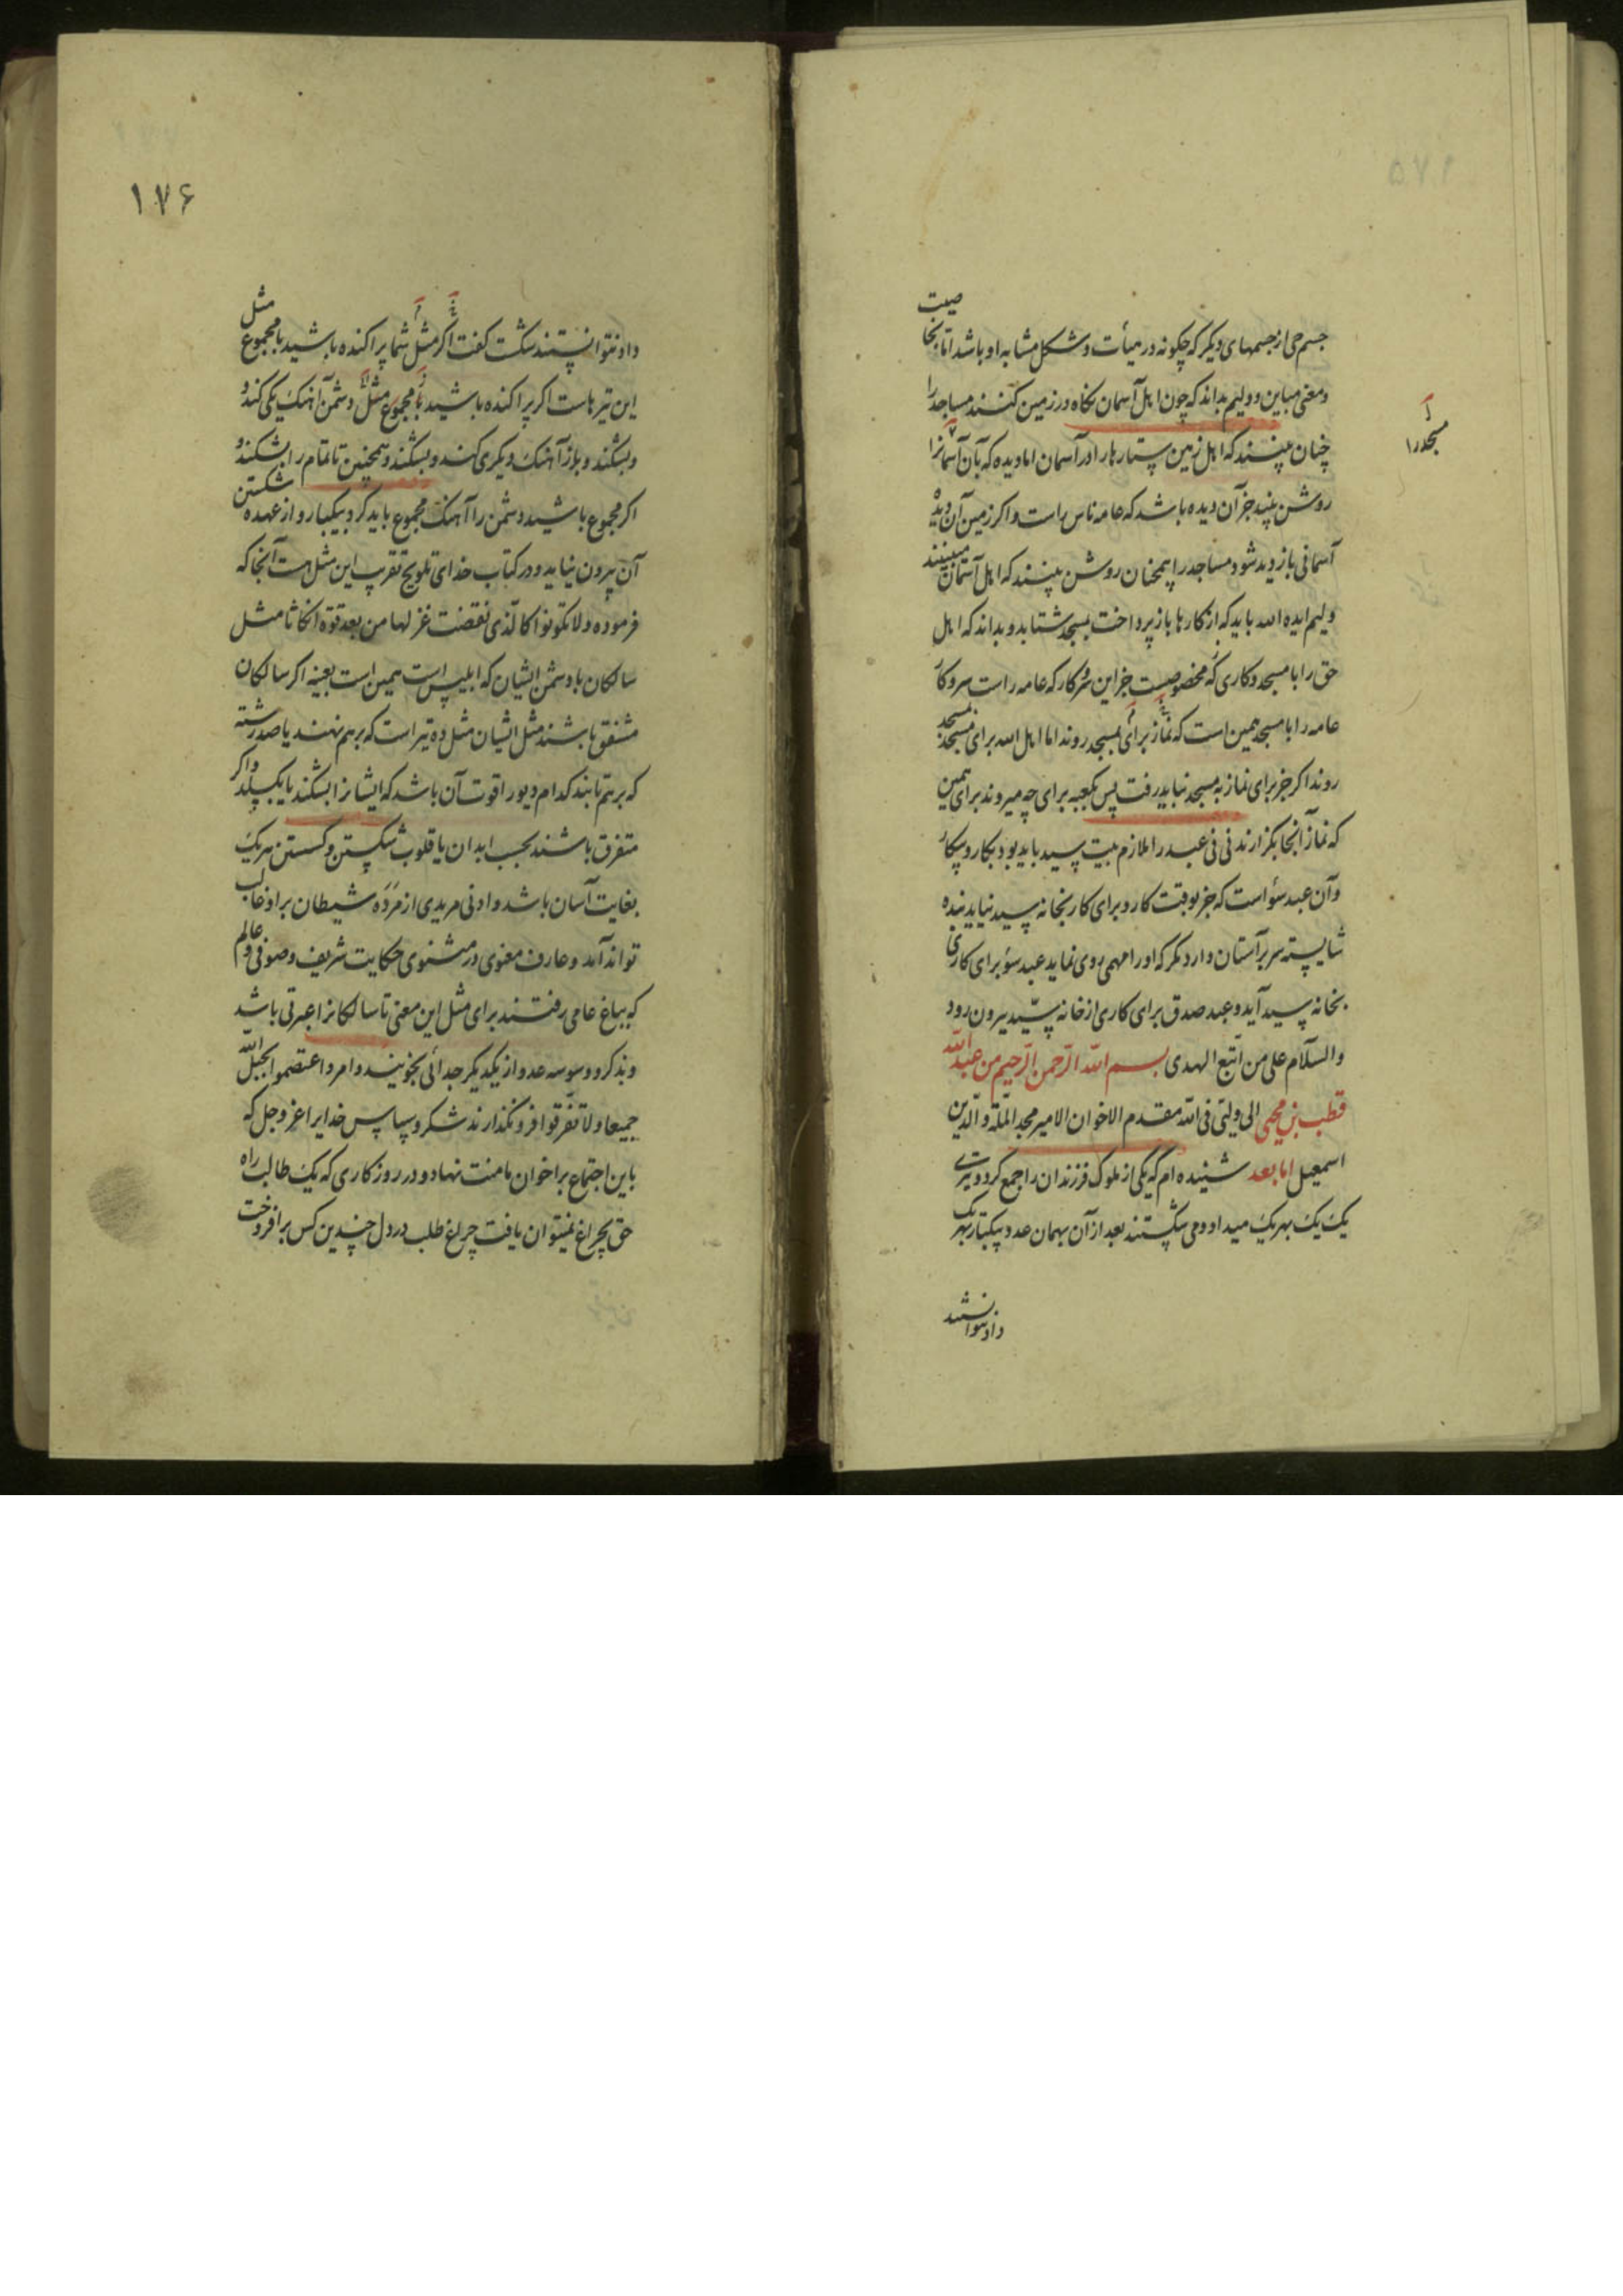 جسم حی از جسمهای دیگر که چگونه در هیأت و شکل مشابه او باشد اما بخاصیت
و معنی مباین و ولیم بداند که چون اهل آسمان نگاه در زمین کنند مساجد را
مسجد را
چنان بینند که اهل زمین ستارها را در آسمان اما دیده که بآن آسمانرا
روشن بیند جز آن دیده باشد که عامه ناس راست و اگر زمین آن دیده
آسمانی باز دید شود مساجد را همچنان روشن بینند که اهل آسمان میبینند
ولیم ایده الله باید که از کارها باز پرداخت بمسجد شتابد و بداند که اهل
حق را با مسجد و کاری که مخصوصست جز این سر و کار که عامه راست سر و کار
عامه را با مسجد همین است که نماز برای بمسجد روند اما اهل الله برای مسجد بمسجد
روند اگر جز برای نماز به مسجد نباید رفت پس بکعبه برای چه میروند برای همین
که نماز آنجا بگزارند نی نی عبد را ملازم بیت سید باید بود بکار و بیکار
و آن عبد سؤ است که جز بوقت کار و برای کار بخانه سید نیاید بنده
شایسته سر بر آستان دارد مگر که او را مهمی روی نماید عبد سؤ برای کاری
بخانه سید آید و عبد صدق برای کاری از خانه سید بیرون رود
والسلام علی من اتبع الهدی بسم الله الرحمن الرحیم من عبد الله
قطب بن محیی الی ولیی فی الله مقدم الاخوان الامیر مجد الملة والدین
اسمعیل اما بعد شنیده ام که یکی از ملوک فرزندان را جمع کرد و تیری
یک یک بهر یک میداد و می شکستند بعد از آن بهمان عدد بیکبار بهر یک
داد نتوانستند
۱۷۶
داد نتوانستند شکست گفت اگر مثل شما پراکنده باشید یا مجموع مثل
این تیرهاست اگر پراکنده باشید یا مجموع مثل دشمن آهنگ یکی کند و
و بشکند و باز آهنگ دیگری کند و بشکند و همچنین تا تمام را بشکند و
اگر مجموع باشید دشمن را آهنگ مجموع باید کرد بیکبار و از عهده شکستن
آن بیرون نیاید و در کتاب خدای تلویح تقریب این مثل هست آنجا که
فرموده و لا تکونوا کالذی نقضت غزلها من بعد قوة انکاثا مثل
سالکان با دشمن ایشان که ابلیس است همین است بعینه اگر سالکان
متفق باشند مثل ایشان مثل ده تیر است که بر هم نهند یا صد رشته
که بر هم تابند کدام دیو را قوت آن باشد که ایشانرا بشکند یا بکسلد و اگر
متفرق باشند بحسب ابدان یا قلوب شکستن و گسستن هر یک
بغایت آسان باشد و ادنی مریدی از مرده شیطان بر او غالب
تواند آمد و عارف معنوی در مثنوی حکایت شریف و صوفی و عالم
که بباغ عامی رفتند برای مثل این معنی تا سالکانرا عبرتی باشد
و بذکر و وسوسه عدو از یکدیگر جدائی نجویند و امر و اعتصموا بحبل الله
جمیعا و لا تفرقوا فرو نگذارند شکر و سپاس خدایرا عز و جل که
باین اجتماع بر اخوان ما منت نهاد و در روزگاری که یک طالب راه
حق بچراغ نمیتوان یافت چراغ طلب در دل چندین کس برافروخت